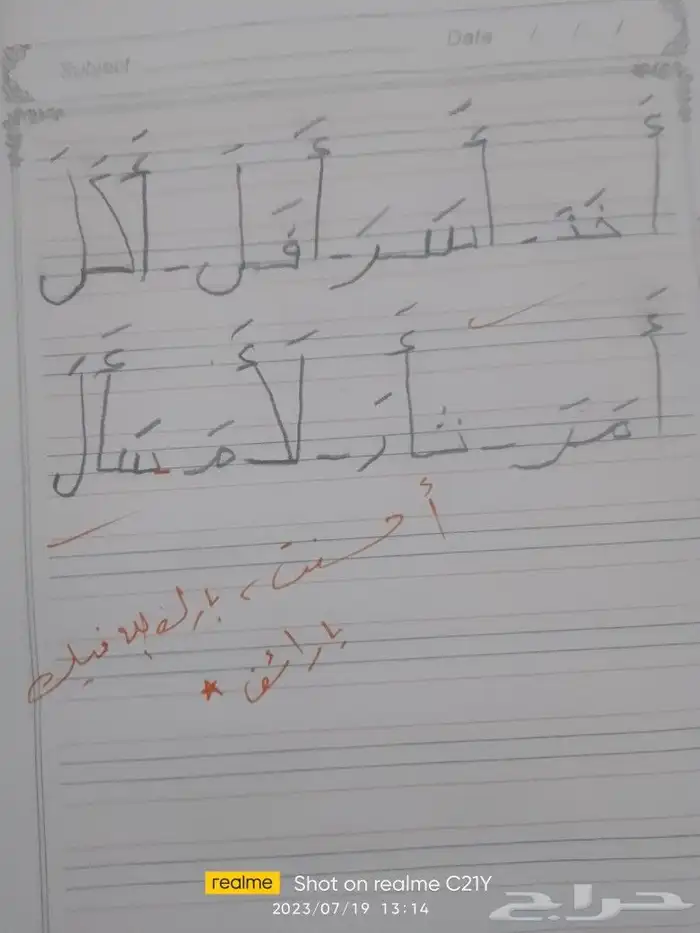 Subject Date / / /
أَخَذَ - أَسَرَ - أَفَلَ - أَكَلَ
أَمَرَ - ثَأَرَ - لَأَمَ سَأَلَ
أحسنت، بارك الله فيك
يا رائف
realme Shot on realme C21Y
2023/07/19 13:14
حراج